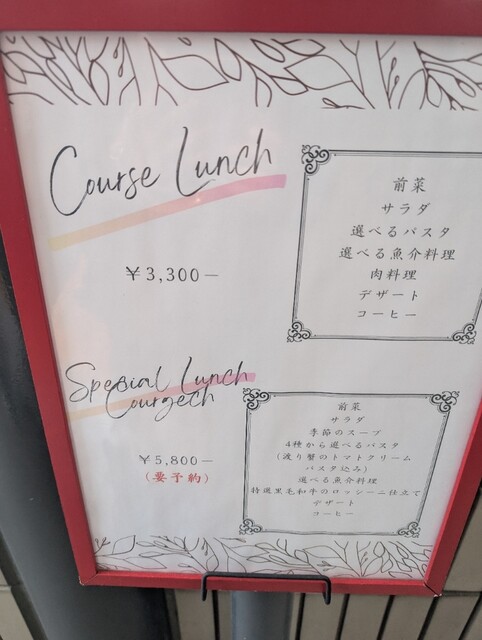 Course Lunch
¥3,300−
前菜
サラダ
選べるパスタ
選べる魚介料理
肉料理
デザート
コーヒー
Special Lunch
Courgech
¥5,800−
(要予約)
前菜
サラダ
季節のスープ
4種から選べるパスタ
(渡り蟹のトマトクリーム
パスタ込み)
選べる魚介料理
特選黒毛和牛のロッシーニ仕立て
デザート
コーヒー